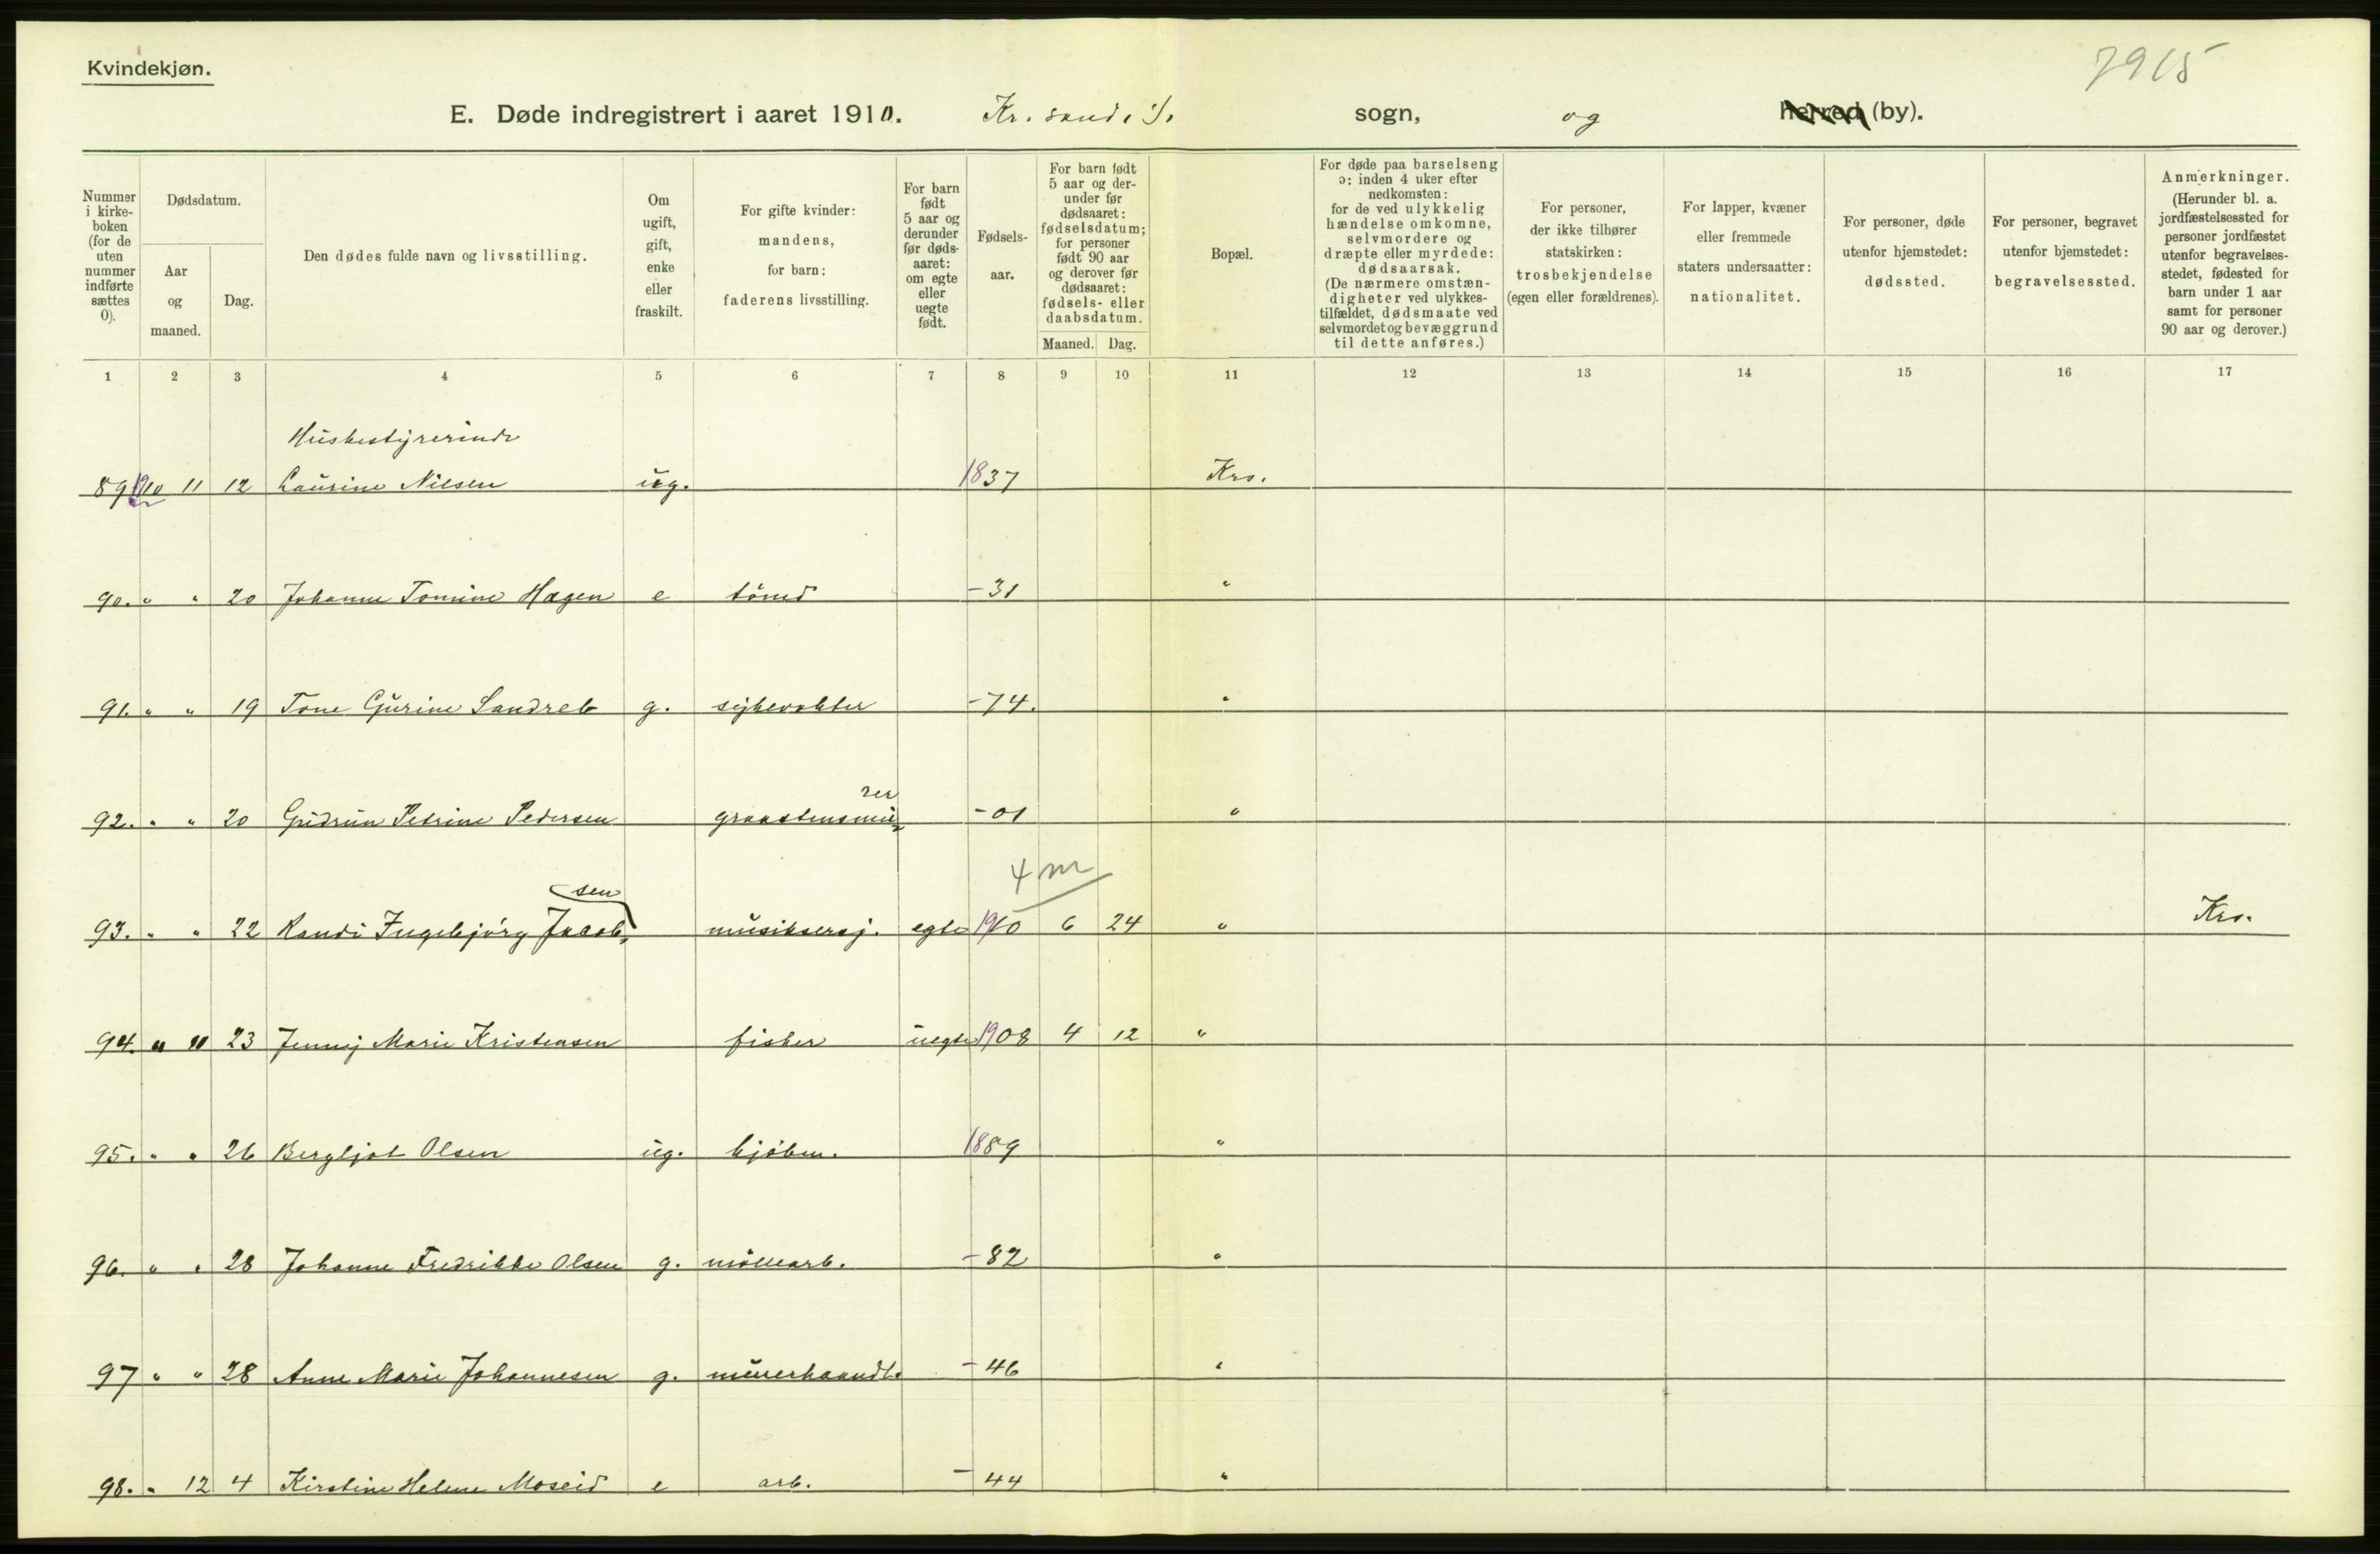 Kvindekjøn.
7915
E. Døde indregistrert i aaret 1910. Kr.sand. S. sogn, og herred (by).
Nummer i kirke-boken (for de uten nummer indførte sættes 0).
Dødsdatum.
Aar og maaned.
Dag.
Den dødes fulde navn og livsstilling.
Om ugift, gift, enke eller fraskilt.
For gifte kvinder: mandens, for barn: faderens livsstilling.
For barn født 5 aar og derunder før døds-aaret: om egte eller uegte født.
Fødsels-aar.
For barn født 5 aar og der-under før dødsaaret: fødselsdatum; for personer født 90 aar og derover før dødsaaret: fødsels- eller daabsdatum.
Maaned. Dag.
Bopæl.
For døde paa barselseng ɔ: inden 4 uker efter nedkomsten: for de ved ulykkelig hændelse omkomne, selvmordere og dræpte eller myrdede: dødsaarsak. (De nærmere omstæn-digheter ved ulykkes-tilfældet, dødsmaate ved selvmordet og bevæggrund til dette anføres.)
For personer, der ikke tilhører statskirken: trosbekjendelse (egen eller forældrenes).
For lapper, kvæner eller fremmede staters undersaatter: nationalitet.
For personer, døde utenfor hjemstedet: dødssted.
For personer, begravet utenfor hjemstedet: begravelsessted.
Anmerkninger. (Herunder bl. a. jordfæstelsessted for personer jordfæstet utenfor begravelses-stedet, fødested for barn under 1 aar samt for personer 90 aar og derover.)
1 2 3 4 5 6 7 8 9 10 11 12 13 14 15 16 17
Husbestyrerinde
89 1910 11 12 Laurine Nilsen ug. 1837 Krs.
90. " " 20 Johanne Tomine Hagen e tømd -31 "
91. " " 19 Tone Gurine Sandreb g. sygevokter -74. "
rer
92. " " 20 Gudrun Petrine Pedersen graastensmu -01 "
4 m
sen
93. " " 22 Randi Ingebjørg Jacob musikersj. egte 1910 6 24 " Krs.
94. " 11 23 Jenny Marie Kristensen fisker uegte 1908 4 12 "
95. " " 26 Bergljot Olsen ug. kjøbm. 1889 "
96. " " 28 Johanne Fredrikke Olsen g. møllearb. -82 "
97 " " 28 Anne Marie Johannesen g. murerhaandl. -46 "
98. " 12 4 Kirstine Helene Moseid e arb. -44 "